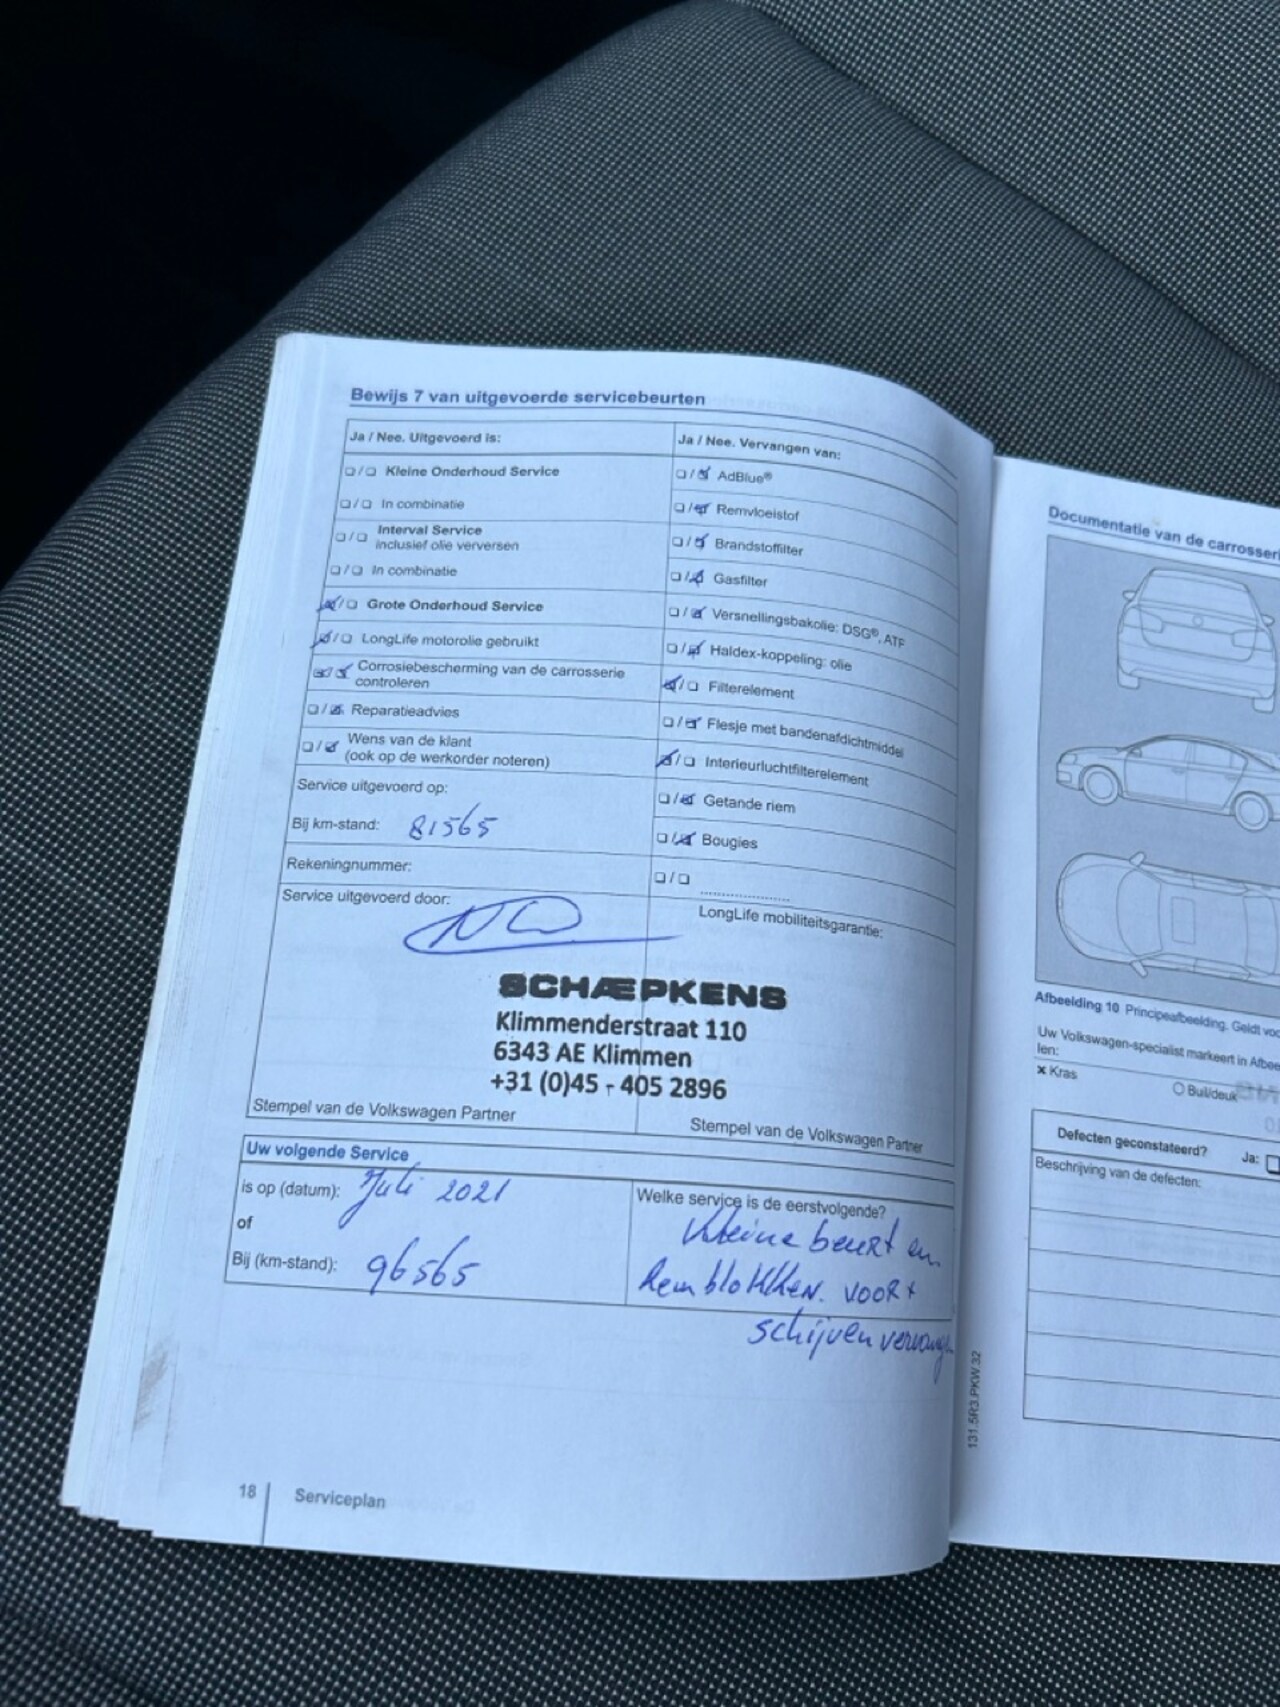 Bewijs 7 van uitgevoerde servicebeurten
Ja / Nee. Uitgevoerd is:
Kleine Onderhoud Service
In combinatie
Interval Service
inclusief olie verversen
In combinatie
Grote Onderhoud Service
LongLife motorolie gebruikt
Corrosiebescherming van de carrosserie
controleren
Reparatieadvies
Wens van de klant
(ook op de werkorder noteren)
Service uitgevoerd op:
Bij km-stand: 81565
Rekeningnummer:
Service uitgevoerd door:
Ja / Nee. Vervangen van:
AdBlue®
Remvloeistof
Brandstoffilter
Gasfilter
Versnellingsbakolie: DSG®, ATF
Haldex-koppeling: olie
Filterelement
Flesje met bandenafdichtmiddel
Interieurluchtfilterelement
Getande riem
Bougies
LongLife mobiliteitsgarantie:
SCHÆPKENS
Klimmenderstraat 110
6343 AE Klimmen
+31 (0)45 - 405 2896
Stempel van de Volkswagen Partner
Stempel van de Volkswagen Partner
Uw volgende Service
is op (datum): Juli 2021
of
Bij (km-stand): 96565
Welke service is de eerstvolgende?
Kleine beurt en
Remblokken. voor +
schijven vervangen
18
Serviceplan
131.5R3.PKW.32
Documentatie van de carrosseri
Afbeelding 10 Principeafbeelding. Geldt voo
Uw Volkswagen-specialist markeert in Afbee
len:
× Kras
Buil/deuk
Defecten geconstateerd? Ja:
Beschrijving van de defecten: